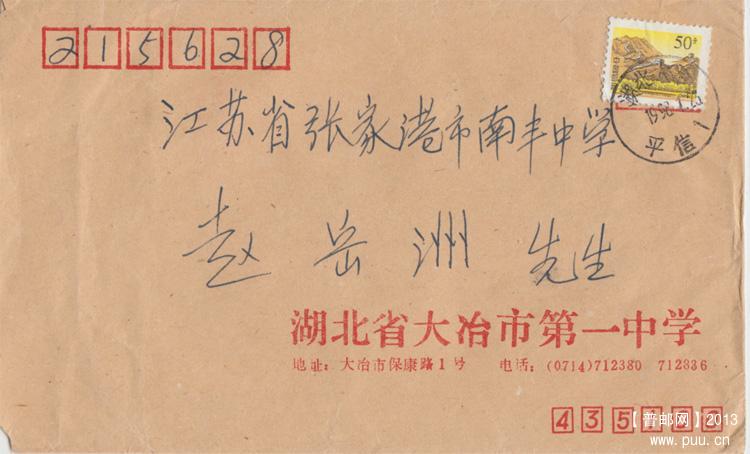 215628
50分
1998.1.23
平信
江苏省张家港市南丰中学
赵岳洲 先生
湖北省大冶市第一中学
地址：大冶市保康路1号 电话：(0714)712380 712336
435100
【普邮网】2013
www.puu.cn